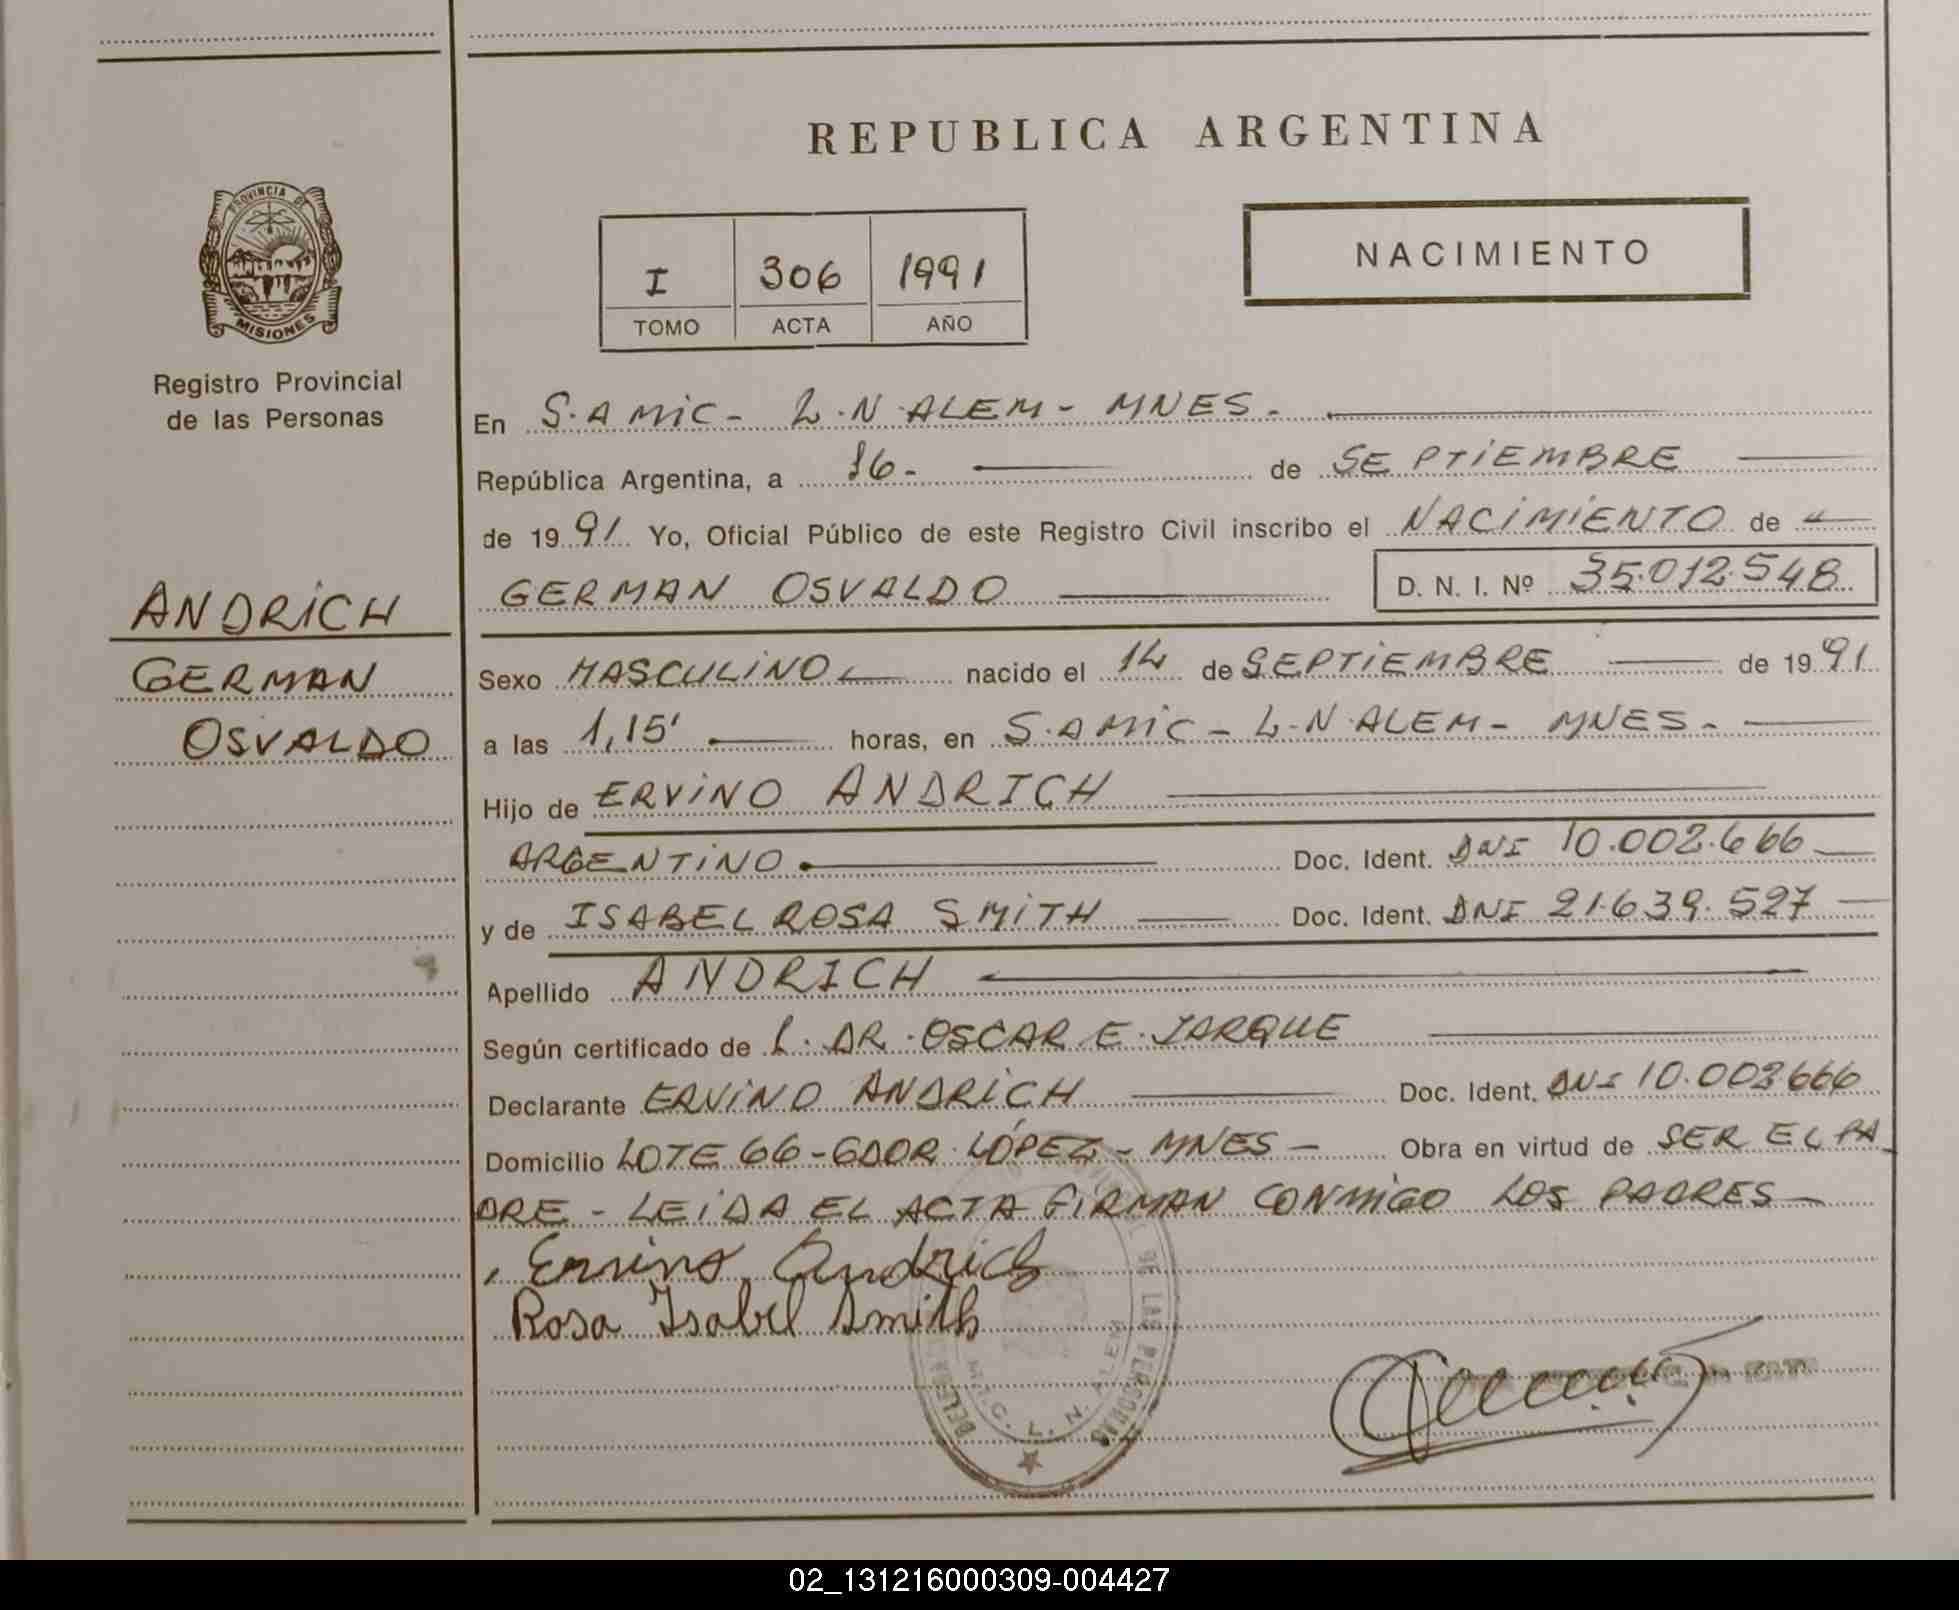 REPUBLICA ARGENTINA
PROVINCIA DE
MISIONES
Registro Provincial
de las Personas
I 306 1991
TOMO ACTA AÑO
NACIMIENTO
En S.AMIC - L.N.ALEM - MNES.
República Argentina, a 16 de SEPTIEMBRE
de 1991 Yo, Oficial Público de este Registro Civil inscribo el NACIMIENTO de
GERMAN OSVALDO D. N. I. Nº 35.012.548
ANDRICH
GERMAN
OSVALDO
Sexo MASCULINO nacido el 14 de SEPTIEMBRE de 1991
a las 1,15' horas, en S.AMIC - L.N.ALEM - MNES.
Hijo de ERVINO ANDRICH
ARGENTINO Doc. Ident. DNI 10.002.666
y de ISABEL ROSA SMITH Doc. Ident. DNI 21.639.527
Apellido ANDRICH
Según certificado de DR. OSCAR E. JARQUE
Declarante ERVINO ANDRICH Doc. Ident. DNI 10.002666
Domicilio LOTE 66 - GDOR. LÓPEZ - MNES - Obra en virtud de SER EL PA
DRE - LEIDA EL ACTA FIRMAN CONMIGO LOS PADRES
Ervino Andrich
Rosa Isabel Smith
DE LAS PERSONAS
L. N. ALEM
02_131216000309-004427